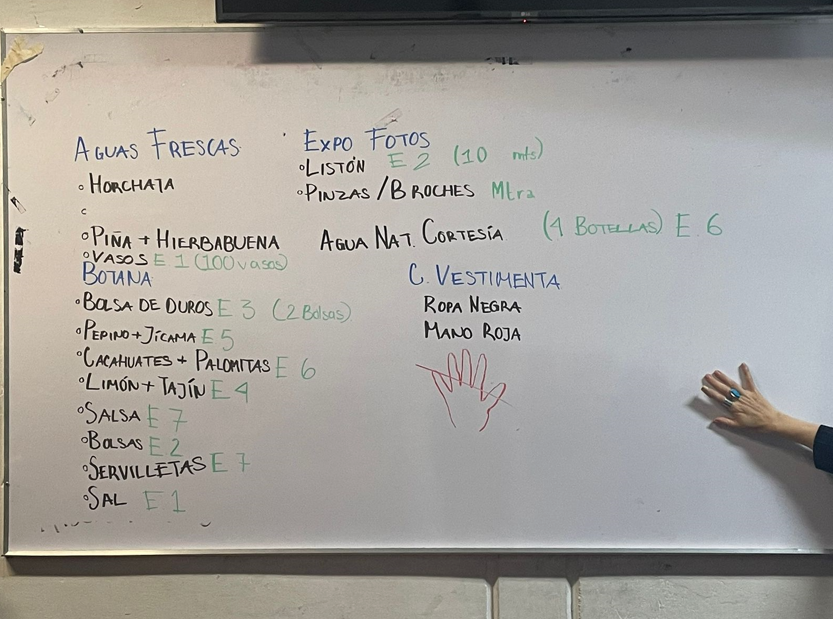 AGUAS FRESCAS
◦ HORCHATA
c
◦ PIÑA + HIERBABUENA
◦ VASOS E 1 (100 vasos)
BOTANA
◦ BOLSA DE DUROS E 3 (2 Bolsas)
◦ PEPINO + JÍCAMA E 5
◦ CACAHUATES + PALOMITAS E 6
◦ LIMÓN + TAJÍN E 4
◦ SALSA E 7
◦ BOLSAS E 2
◦ SERVILLETAS E 7
◦ SAL E 1
EXPO FOTOS
◦ LISTÓN E 2 (10 mts)
◦ PINZAS / BROCHES Mtra
AGUA NAT. CORTESÍA (4 BOTELLAS) E. 6
C. VESTIMENTA
ROPA NEGRA
MANO ROJA